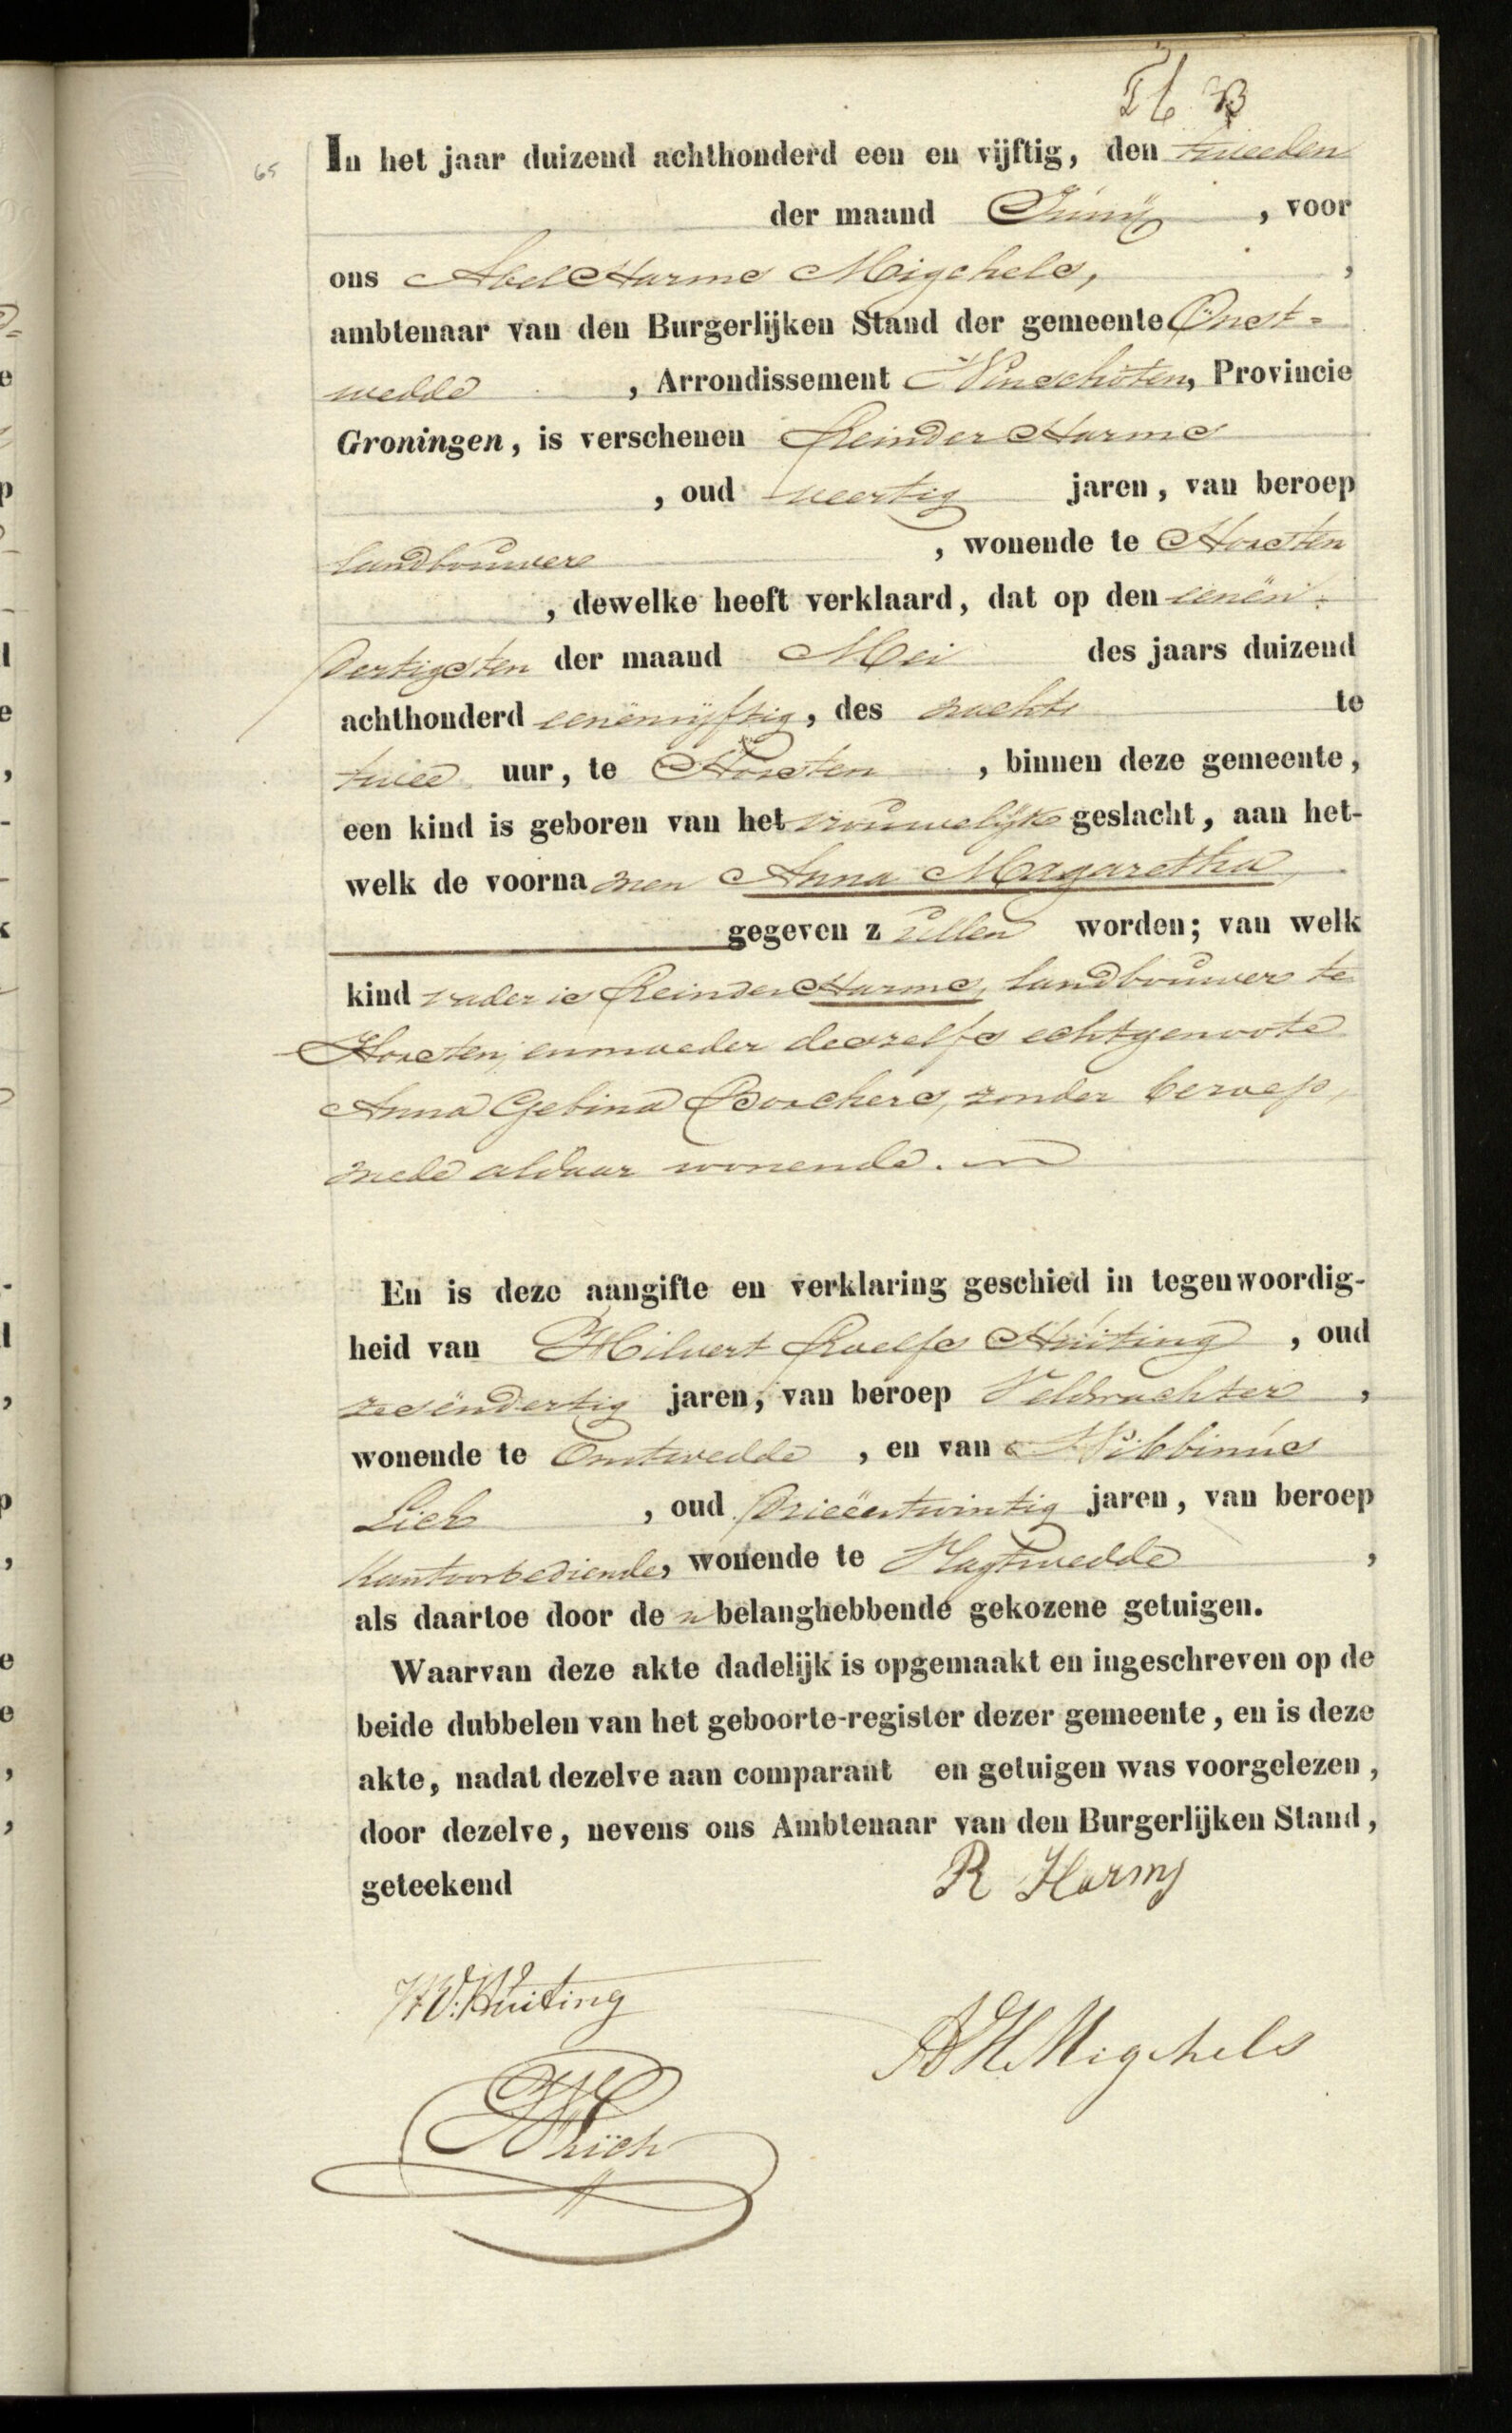 65
In het jaar duizend achthonderd een en vijftig, den tweeden
der maand Junij, voor
ons Abel Harms Migchels,
ambtenaar van den Burgerlijken Stand der gemeente Onst=
wedde, Arrondissement Winschoten, Provincie
Groningen, is verschenen Reinder Harms
, oud veertig jaren, van beroep
landbouwer, wonende te Horsten
, dewelke heeft verklaard, dat op den eenen
dertigsten der maand Mei des jaars duizend
achthonderd eenenvijftig, des nachts te
twee uur, te Horsten, binnen deze gemeente,
een kind is geboren van het vrouwelijke geslacht, aan het-
welk de voornamen Anna Magaretha,
gegeven zullen worden; van welk
kind vader is Reinder Harms, landbouwer te
Horsten, en moeder deszelfs echtgenoote
Anna Gebina Borchers, zonder beroep,
mede aldaar wonende.
En is deze aangifte en verklaring geschied in tegenwoordig-
heid van Hilvert Roelfs Huiting, oud
zesendertig jaren, van beroep Veldwachter,
wonende te Onstwedde, en van Wibbinus
, oud drieëntwintig jaren, van beroep
Kantoorbediende, wonende te Vlagtwedde,
als daartoe door de n belanghebbende gekozene getuigen.
Waarvan deze akte dadelijk is opgemaakt en ingeschreven op de
beide dubbelen van het geboorte-register dezer gemeente, en is deze
akte, nadat dezelve aan comparant en getuigen was voorgelezen,
door dezelve, nevens ons Ambtenaar van den Burgerlijken Stand,
geteekend R Harms
Huiting
A H Migchels